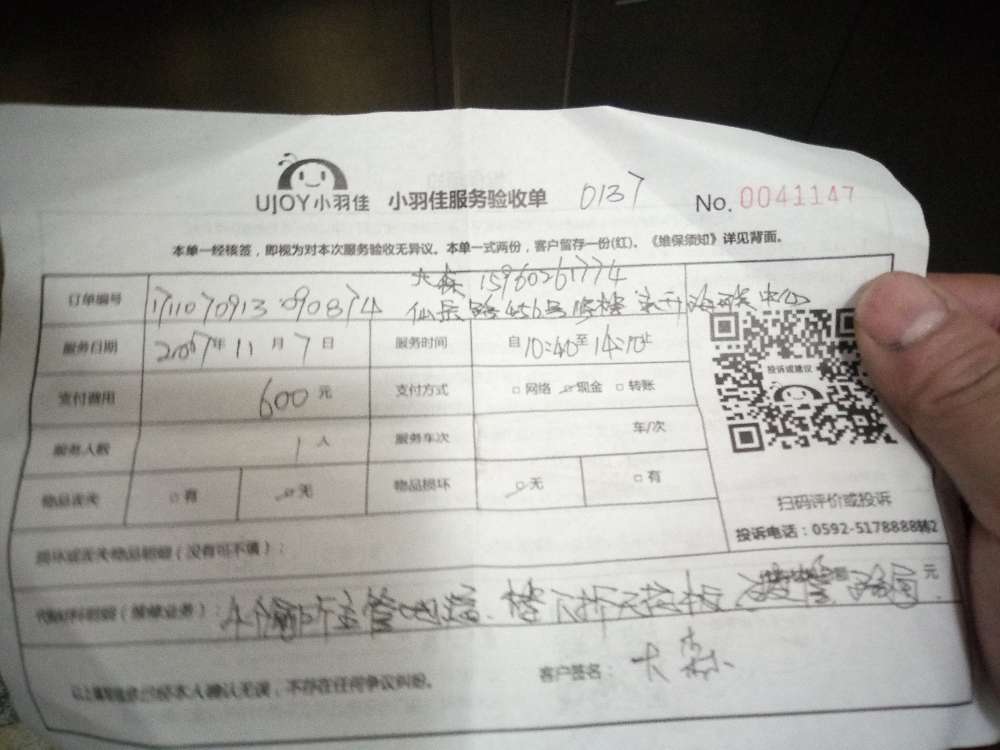 UJOY小羽佳 小羽佳服务验收单 0137 No. 0041147
本单一经核签，即视为对本次服务验收无异议。本单一式两份，客户留存一份(红)。《维保须知》详见背面。
大森 15960261774
订单编号 1711070913090874 仙岳路456号
服务日期 2017年11月7日 服务时间 自10:40至14:10止
投诉或建议
支付费用 600元 支付方式 网络 现金 转账
服务人数 1人 服务车次 车/次
物品丢失 有 无 物品损坏 无 有
扫码评价或投诉
投诉电话：0592-5178888转2
损坏或丢失物品明细（没有可不填）：
元
客户签名： 大森
不存在任何争议纠纷。